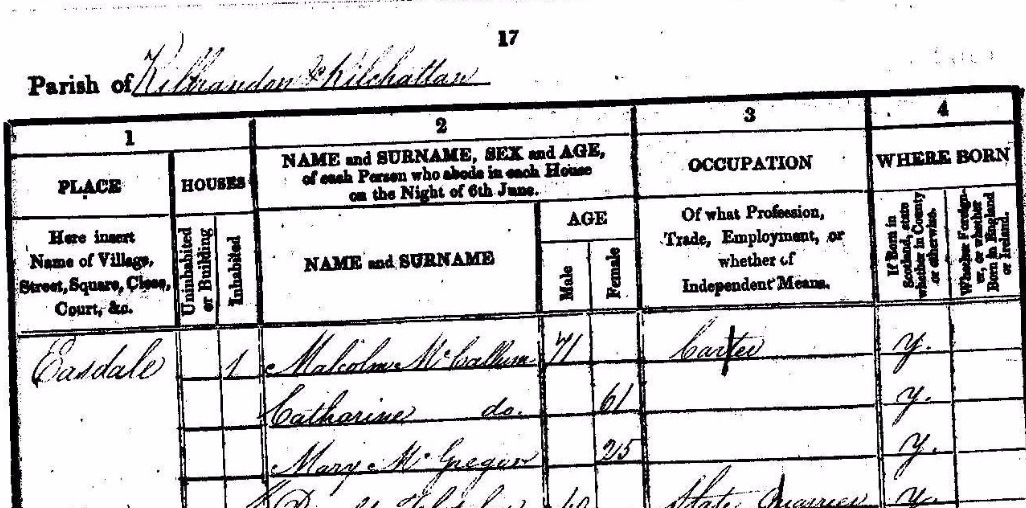 17
Parish of Kilbrandon & Kilchattan
1 2 3 4
PLACE
HOUSES
NAME and SURNAME, SEX and AGE,
of each Person who abode in each House
on the Night of 6th June.
OCCUPATION
WHERE BORN
Here insert
Name of Village,
Street, Square, Close,
Court, &c.
Uninhabited
or Building
Inhabited
NAME and SURNAME
AGE
Male
Female
Of what Profession,
Trade, Employment, or
whether of
Independent Means.
If Born in
Scotland, state
whether in County
or otherwise.
Whether Foreign-
er, or whether
Born in England
or Ireland.
Easdale 1 Malcolm McCallum 71 Carter y.
Catharine do. 61 y.
Mary McGregor 25 y.
Slate Quarrier y.